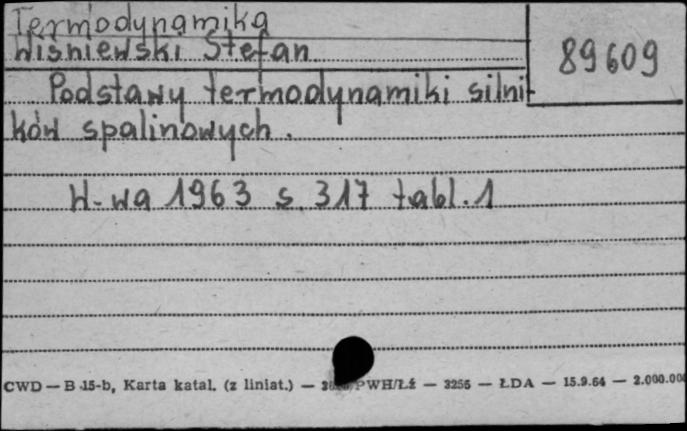 Termodynamika
Wiśniewski Stefan
89609
Podstawy termodynamiki silni-
ków spalinowych.
W-wa 1963 s. 317 tabl. 1
CWD — B 15-b, Karta katal. (z liniat.) — PWH/Łź — 3256 — ŁDA — 15.9.64 — 2.000.000